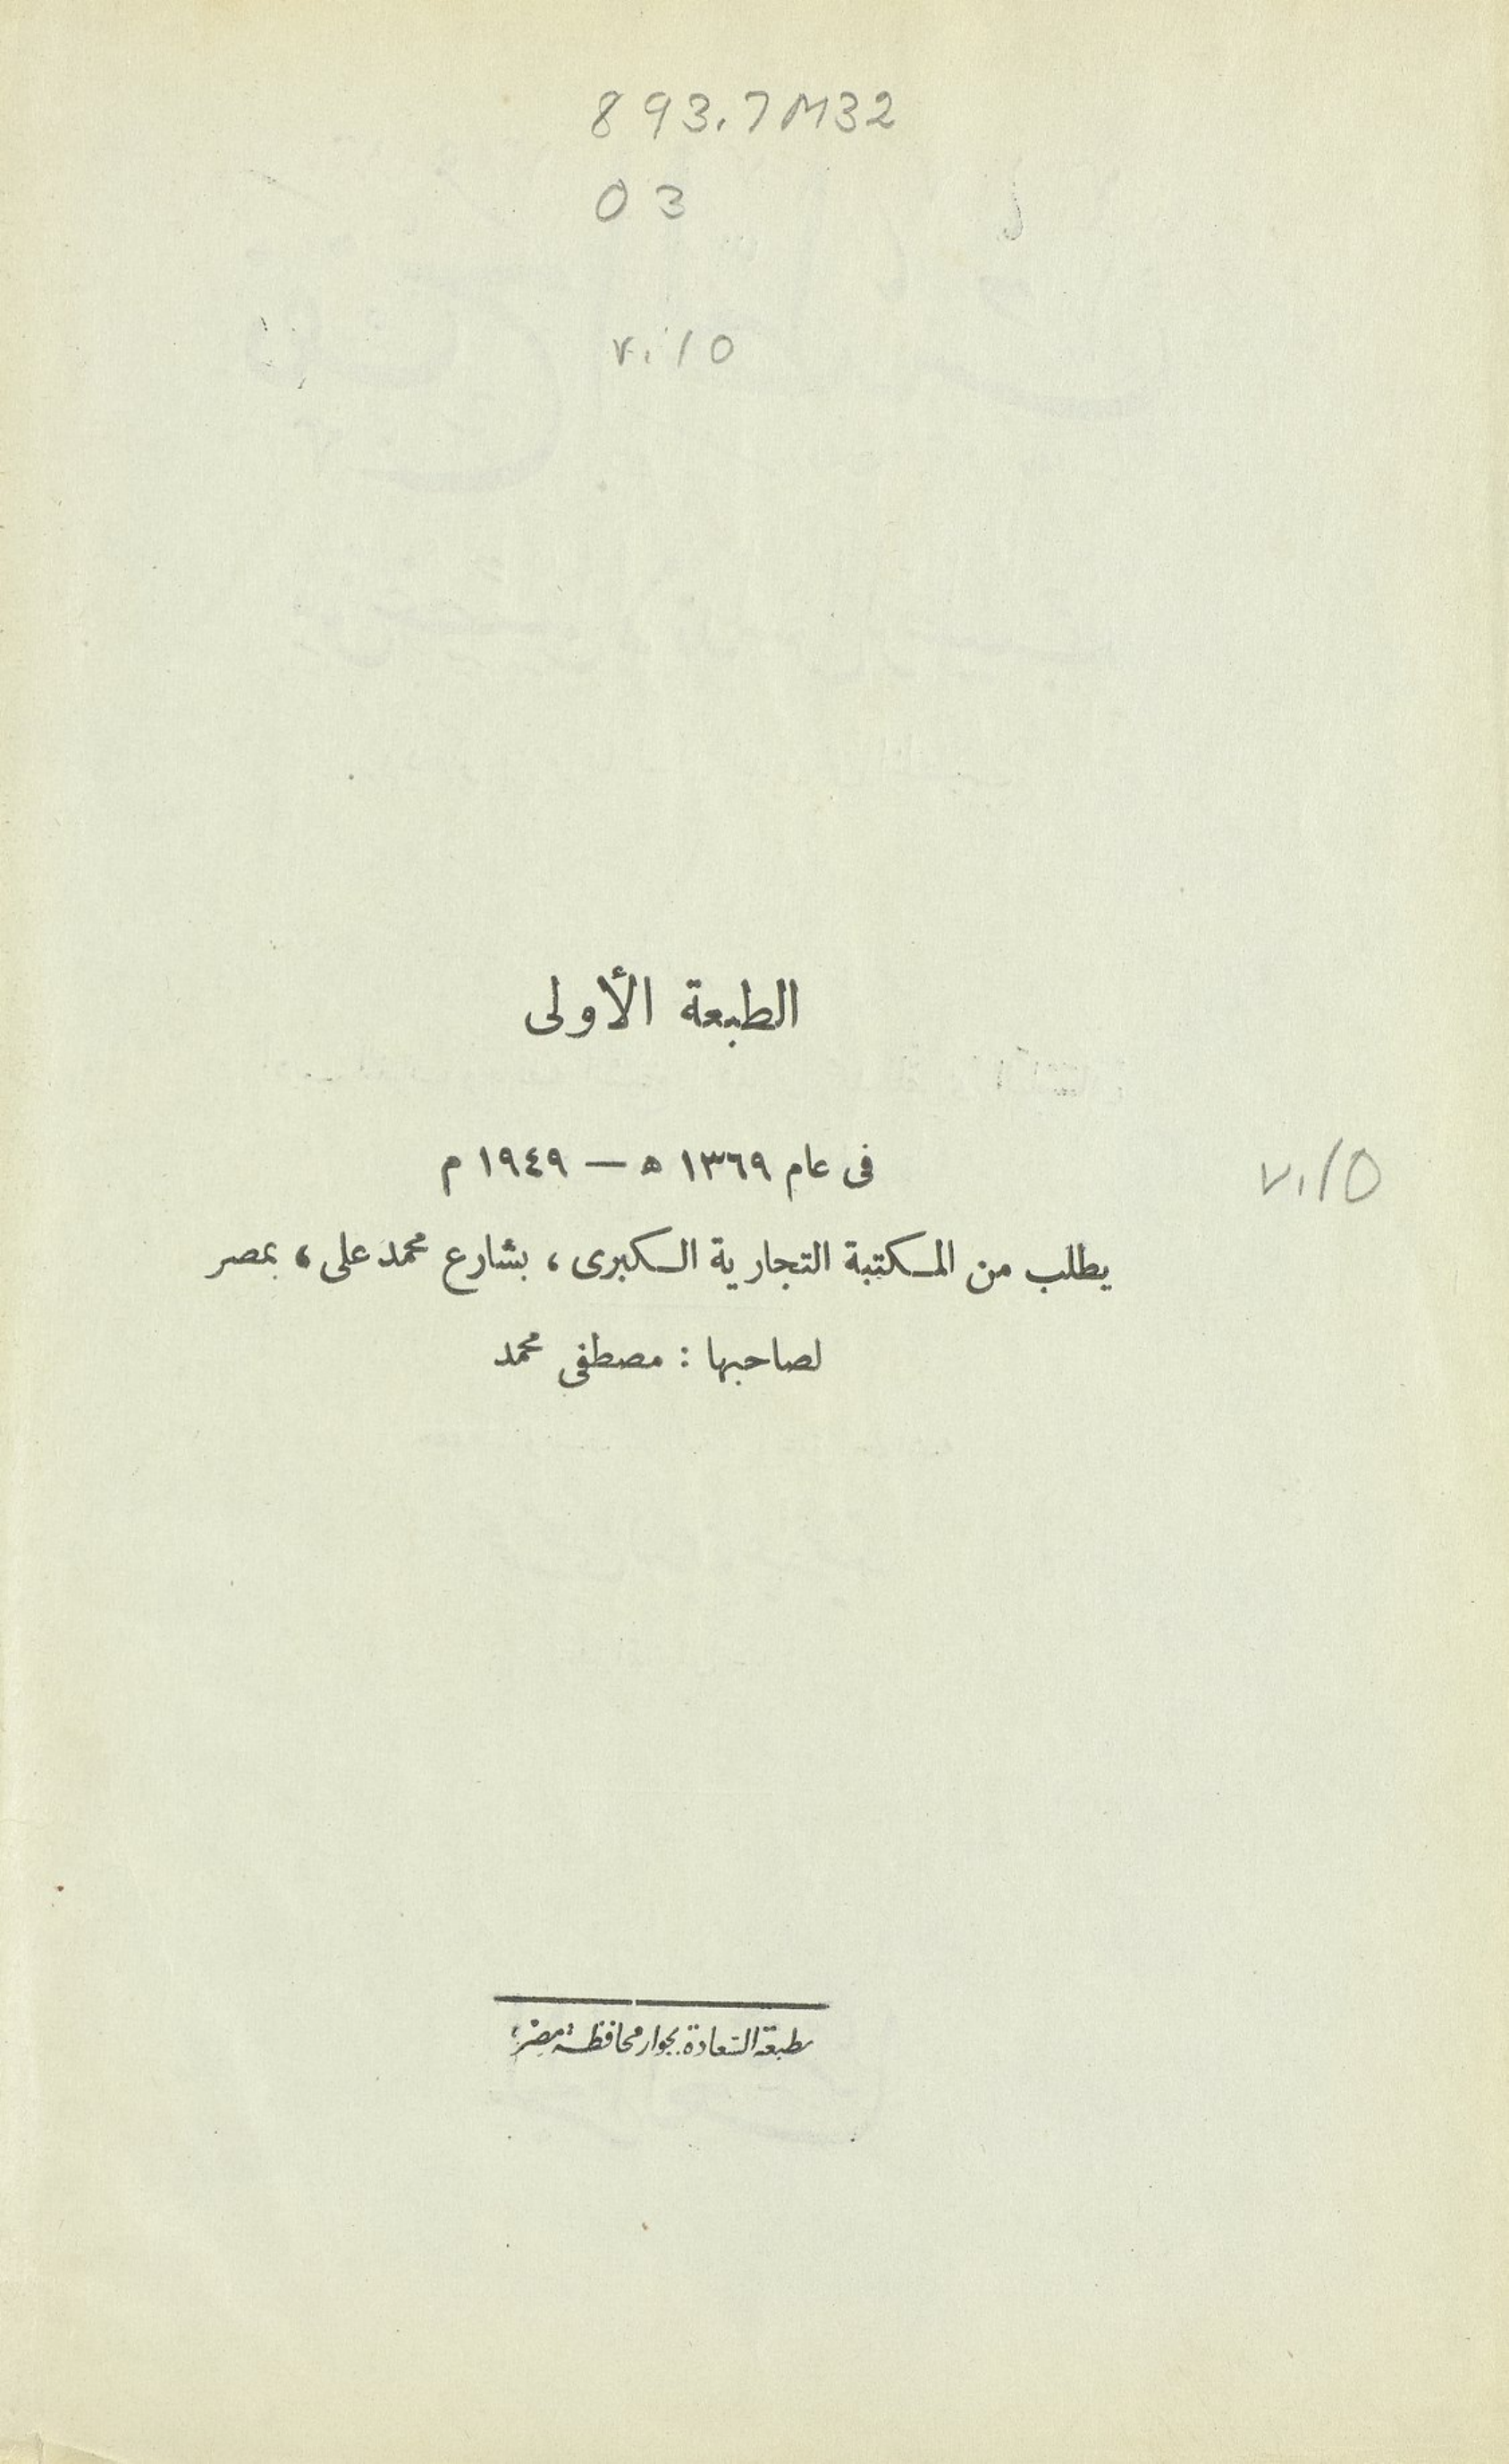 893.7M32
03
v.10
الطبعة الأولى
فى عام ١٣٦٩ ه — ١٩٤٩ م
v.10
يطلب من المكتبة التجارية الكبرى ، بشارع محمد على ، بمصر
لصاحبها : مصطفى محمد
مطبعة السعادة بجوار محافظة مصر